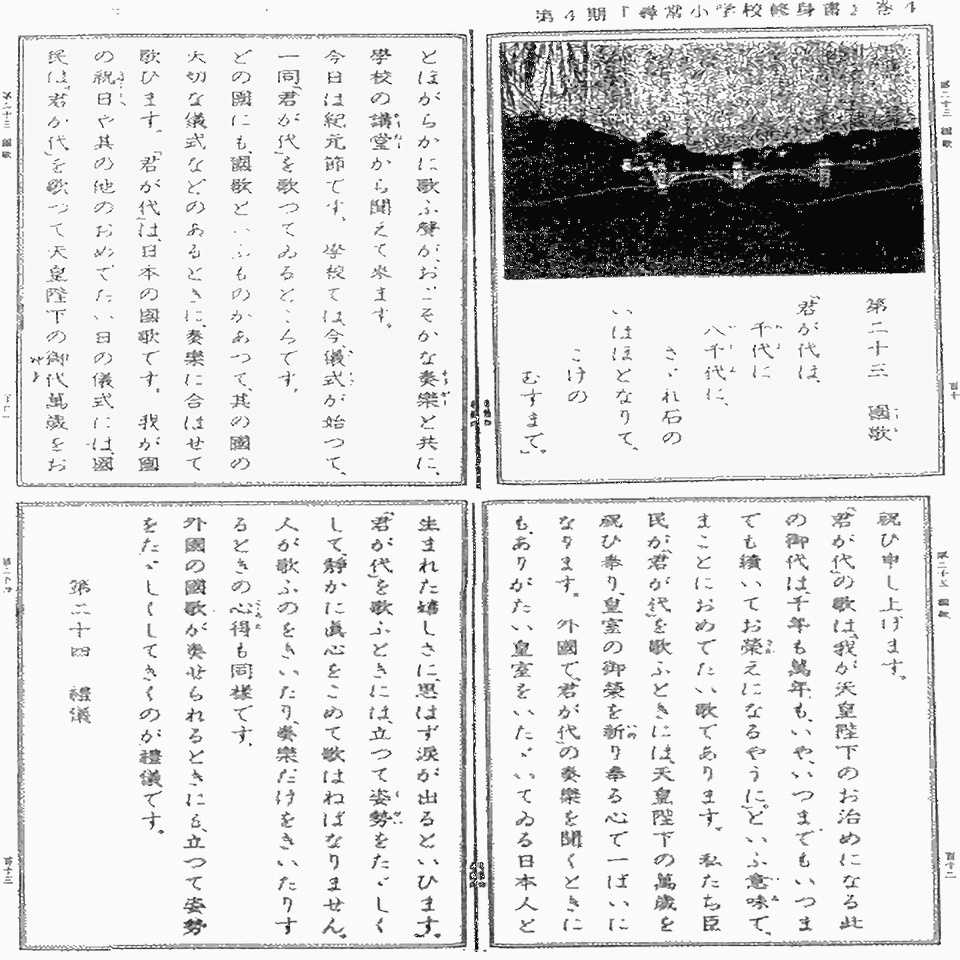 第4期『尋常小学校修身書』巻4
第二十三 國歌
「君が代は、
千代に
八千代に、
さゞれ石の
いはほとなりて、
こけの
むすまで。」
とほがらかに歌ふ聲が、おごそかな奏樂と共に、
學校の講堂から聞えて來ます。
今日は紀元節です。學校では今、儀式が始つて、
一同「君が代」を歌つてゐるところです。
どの國にも、國歌といふものがあつて、其の國の
大切な儀式などのあるときに、奏樂に合はせて
歌ひます。「君が代」は、日本の國歌です。我が國
の祝日や其の他のおめでたい日の儀式には、國
民は、「君が代」を歌つて、天皇陛下の御代萬歳をお
祝ひ申し上げます。
「君が代」の歌は、「我が天皇陛下のお治めになる此
の御代は、千年も萬年も、いや、いつまでもいつま
でも續いてお榮えになるやうに。」といふ意味で、
まことにおめでたい歌であります。私たち臣
民が「君が代」を歌ふときには、天皇陛下の萬歳を
祝ひ奉り、皇室の御榮を祈り奉る心で一ぱいに
なります。外國で「君が代」の奏樂を聞くときに
も、ありがたい皇室をいたゞいてゐる日本人と
生まれた嬉しさに、思はず涙が出るといひます。
「君が代」を歌ふときには、立つて姿勢をたゞしく
して、靜かに眞心をこめて歌はねばなりません。
人が歌ふのをきいたり、奏樂だけをきいたりす
るときの心得も同樣です。
外國の國歌が奏せられるときにも、立つて姿勢
をたゞしくしてきくのが禮儀です。
第二十四 禮儀